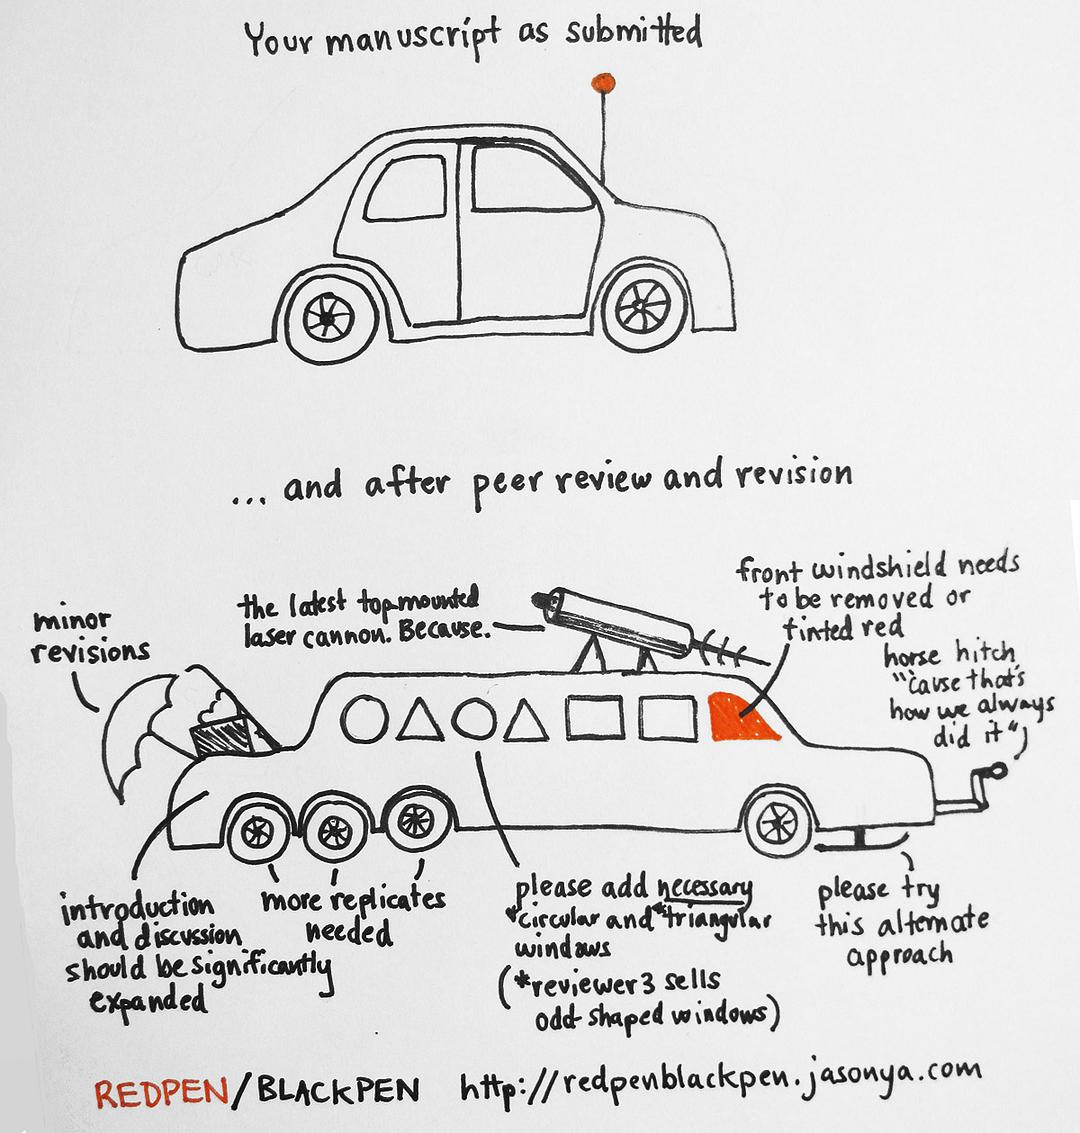 Your manuscript as submitted
... and after peer review and revision
minor
revisions
the latest top-mounted
laser cannon. Because.
front windshield needs
to be removed or
tinted red
horse hitch
"cause that's
how we always
did it"
introduction
and discussion
should be significantly
expanded
more replicates
needed
please add necessary
*circular and *triangular
windows
(*reviewer 3 sells
odd-shaped windows)
please try
this alternate
approach
REDPEN/BLACKPEN http://redpenblackpen.jasonya.com